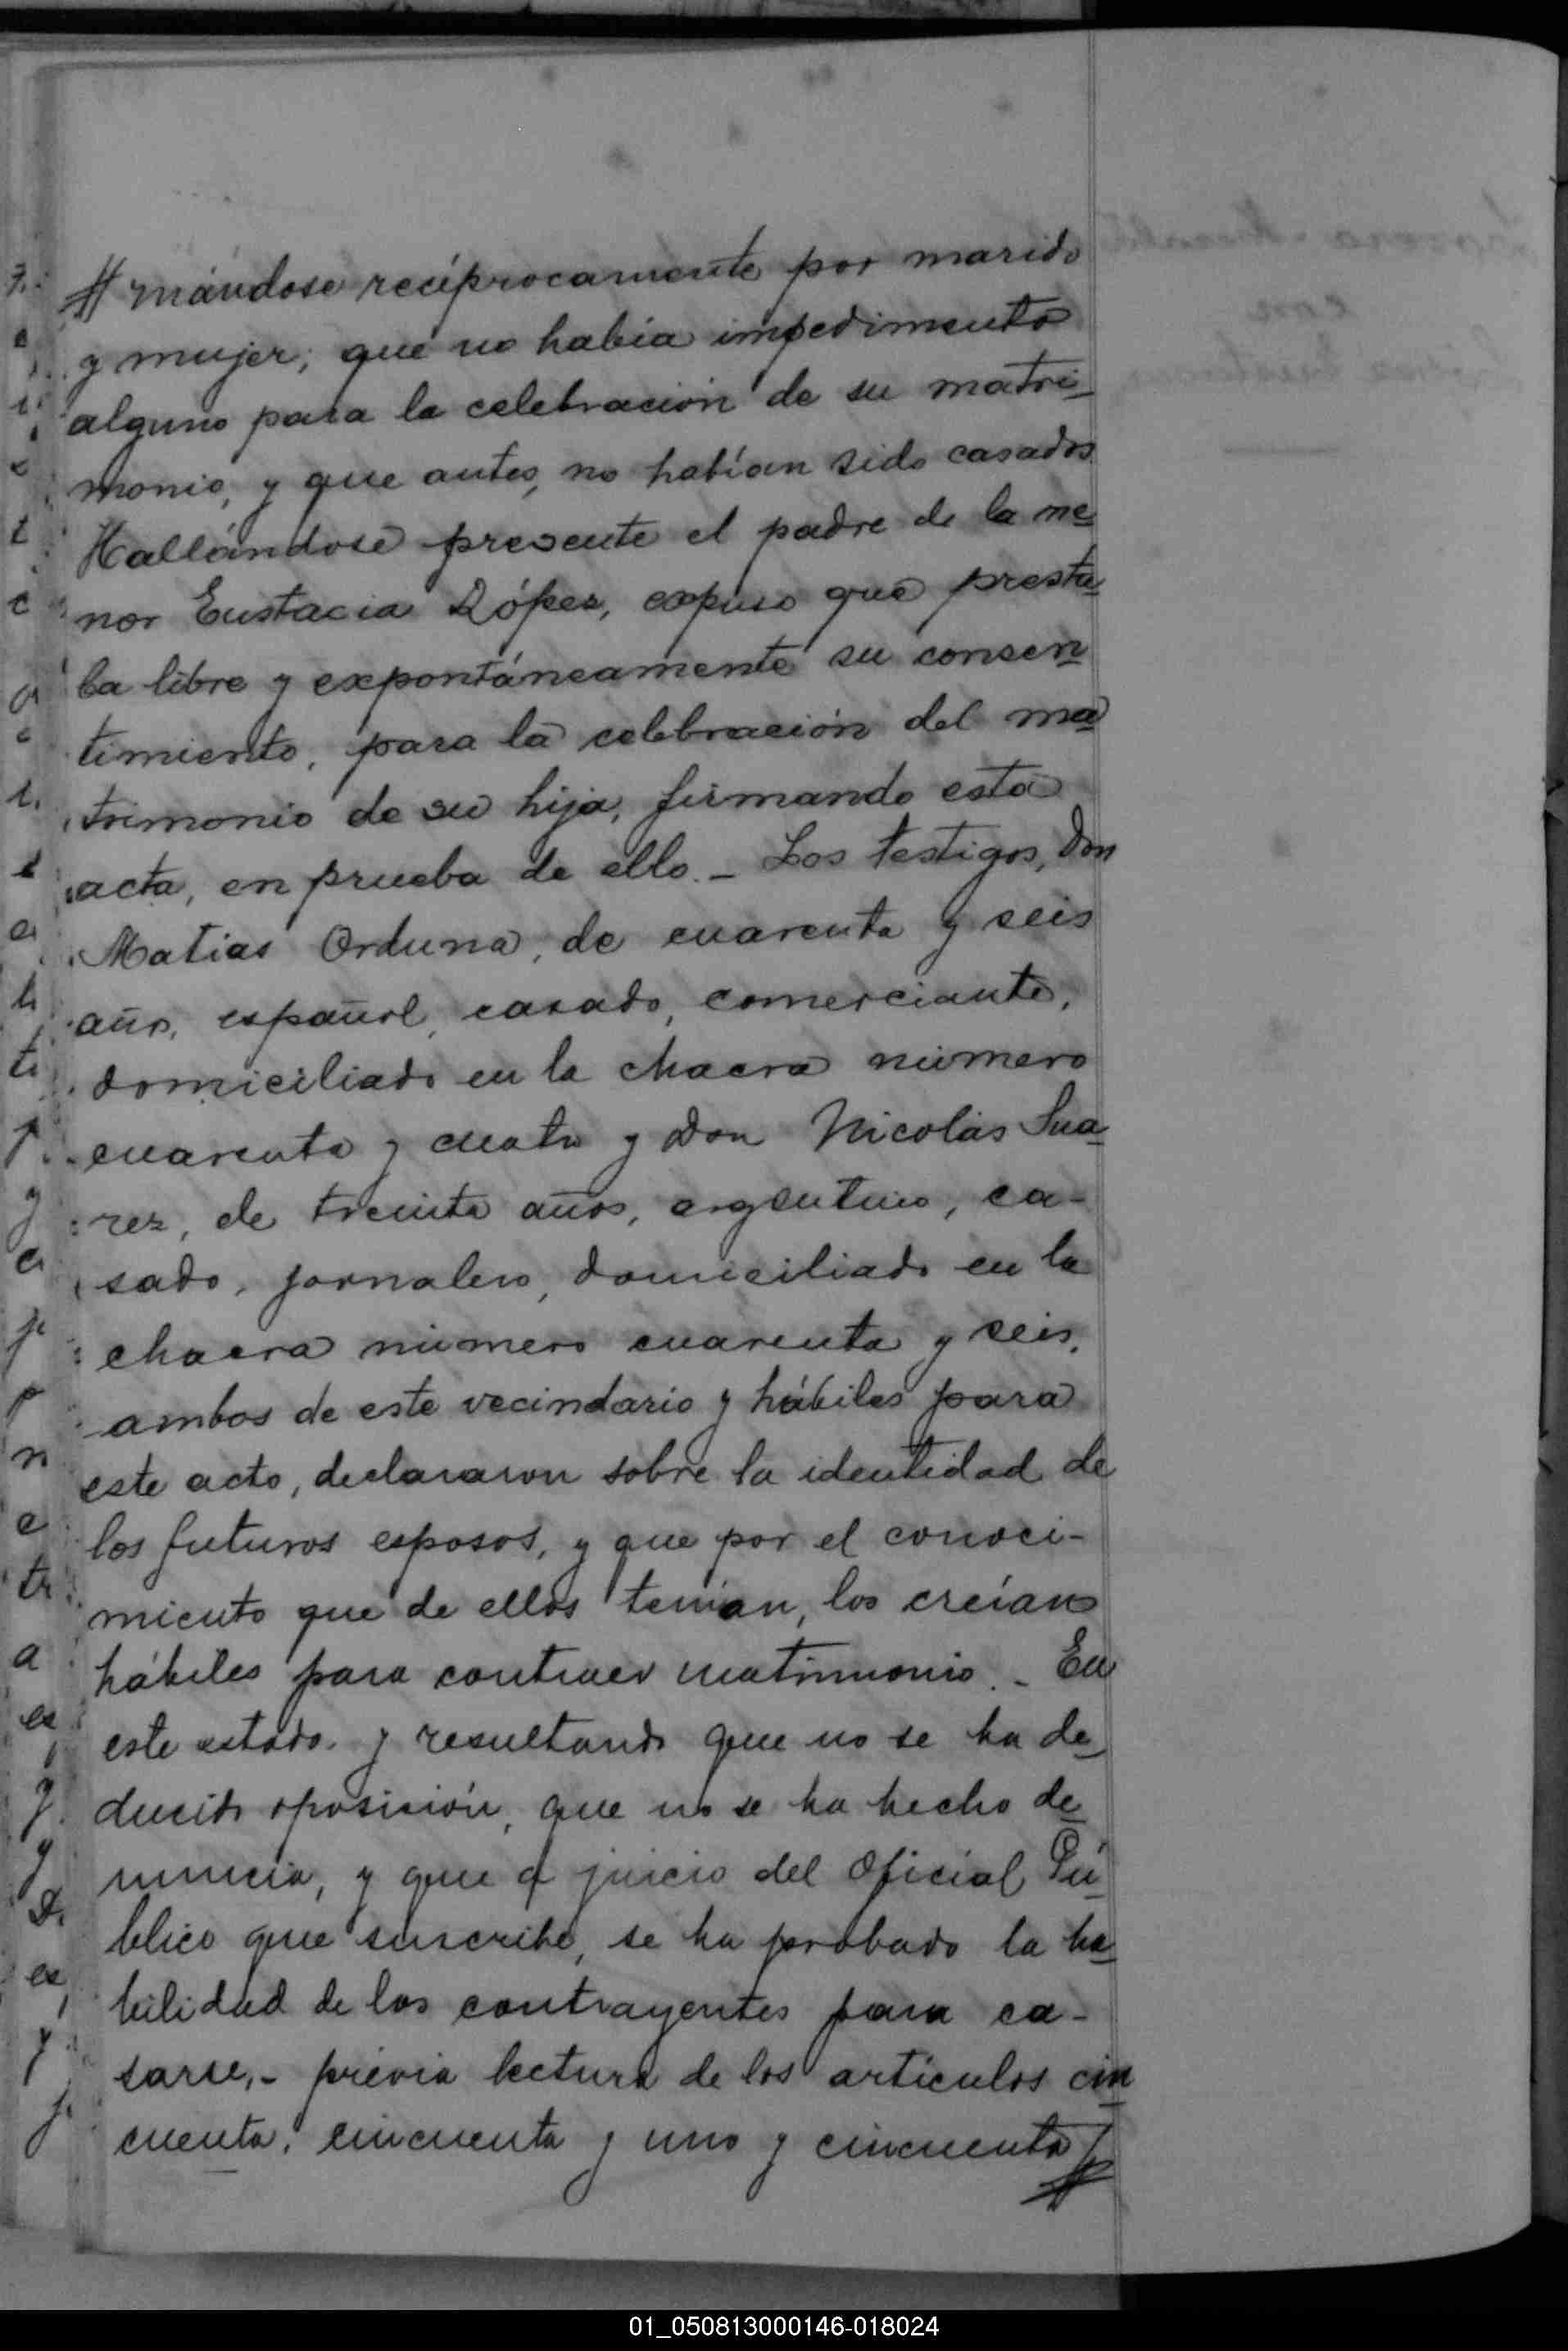 mándose recíprocamente por marido
y mujer; que no había impedimento
alguno para la celebración de su matri-
monio, y que antes, no habían sido casados.
Hallándose presente el padre de la me-
nor Eustacia López, expuso que presta-
ba libre y expontáneamente su consen-
timiento, para la celebración del ma-
trimonio de su hija, firmando esta
acta, en prueba de ello.- Los testigos, Don
Matias Orduna, de cuarenta y seis
años, español, casado, comerciante,
domiciliado en la chacra número
cuarenta y cuatro y Don Nicolás Sua-
rez, de treinta años, argentino, ca-
sado, jornalero, domiciliado en la
chacra número cuarenta y seis,
ambos de este vecindario y hábiles para
este acto, declararon sobre la identidad de
los futuros esposos, y que por el conoci-
miento que de ellos tenían, los creían
hábiles para contraer matrimonio.- En
este estado y resultando que no se ha de-
ducido oposición, que no se ha hecho de-
nuncia, y que a juicio del Oficial Pú-
blico que suscribe, se ha probado la ha-
bilidad de los contrayentes para ca-
sarse,- prévia lectura de los artículos cin-
cuenta, cincuenta y uno y cincuenta
01_050813000146-018024